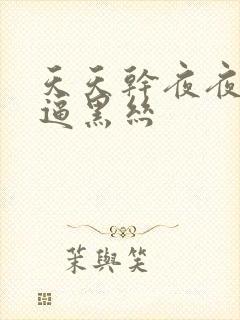 天天幹夜夜
逼黑絲
茉與笑